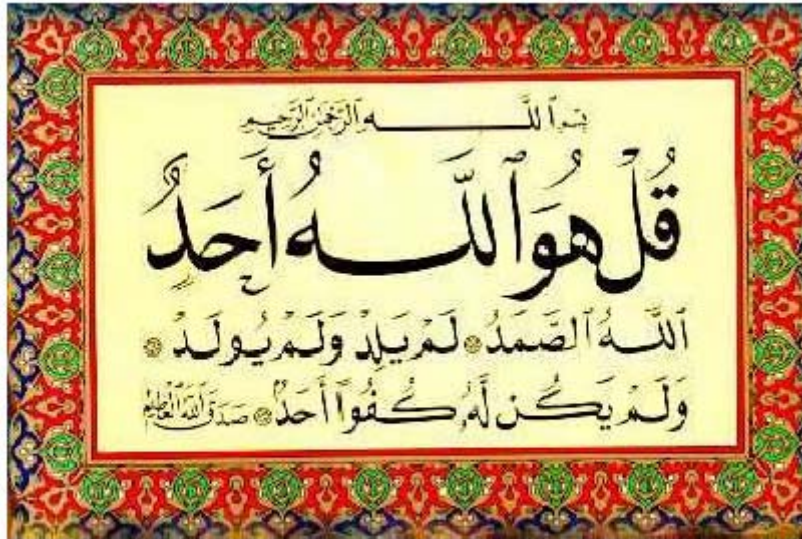 بِسْمِ ٱللَّهِ ٱلرَّحْمَٰنِ ٱلرَّحِيمِ
قُلْ هُوَ ٱللَّهُ أَحَدٌ
ٱللَّهُ ٱلصَّمَدُ ۞ لَمْ يَلِدْ وَلَمْ يُولَدْ ۞
وَلَمْ يَكُن لَّهُۥ كُفُوًا أَحَدٌۢ ۞ صَدَقَ ٱللَّهُ ٱلْعَظِيمُ